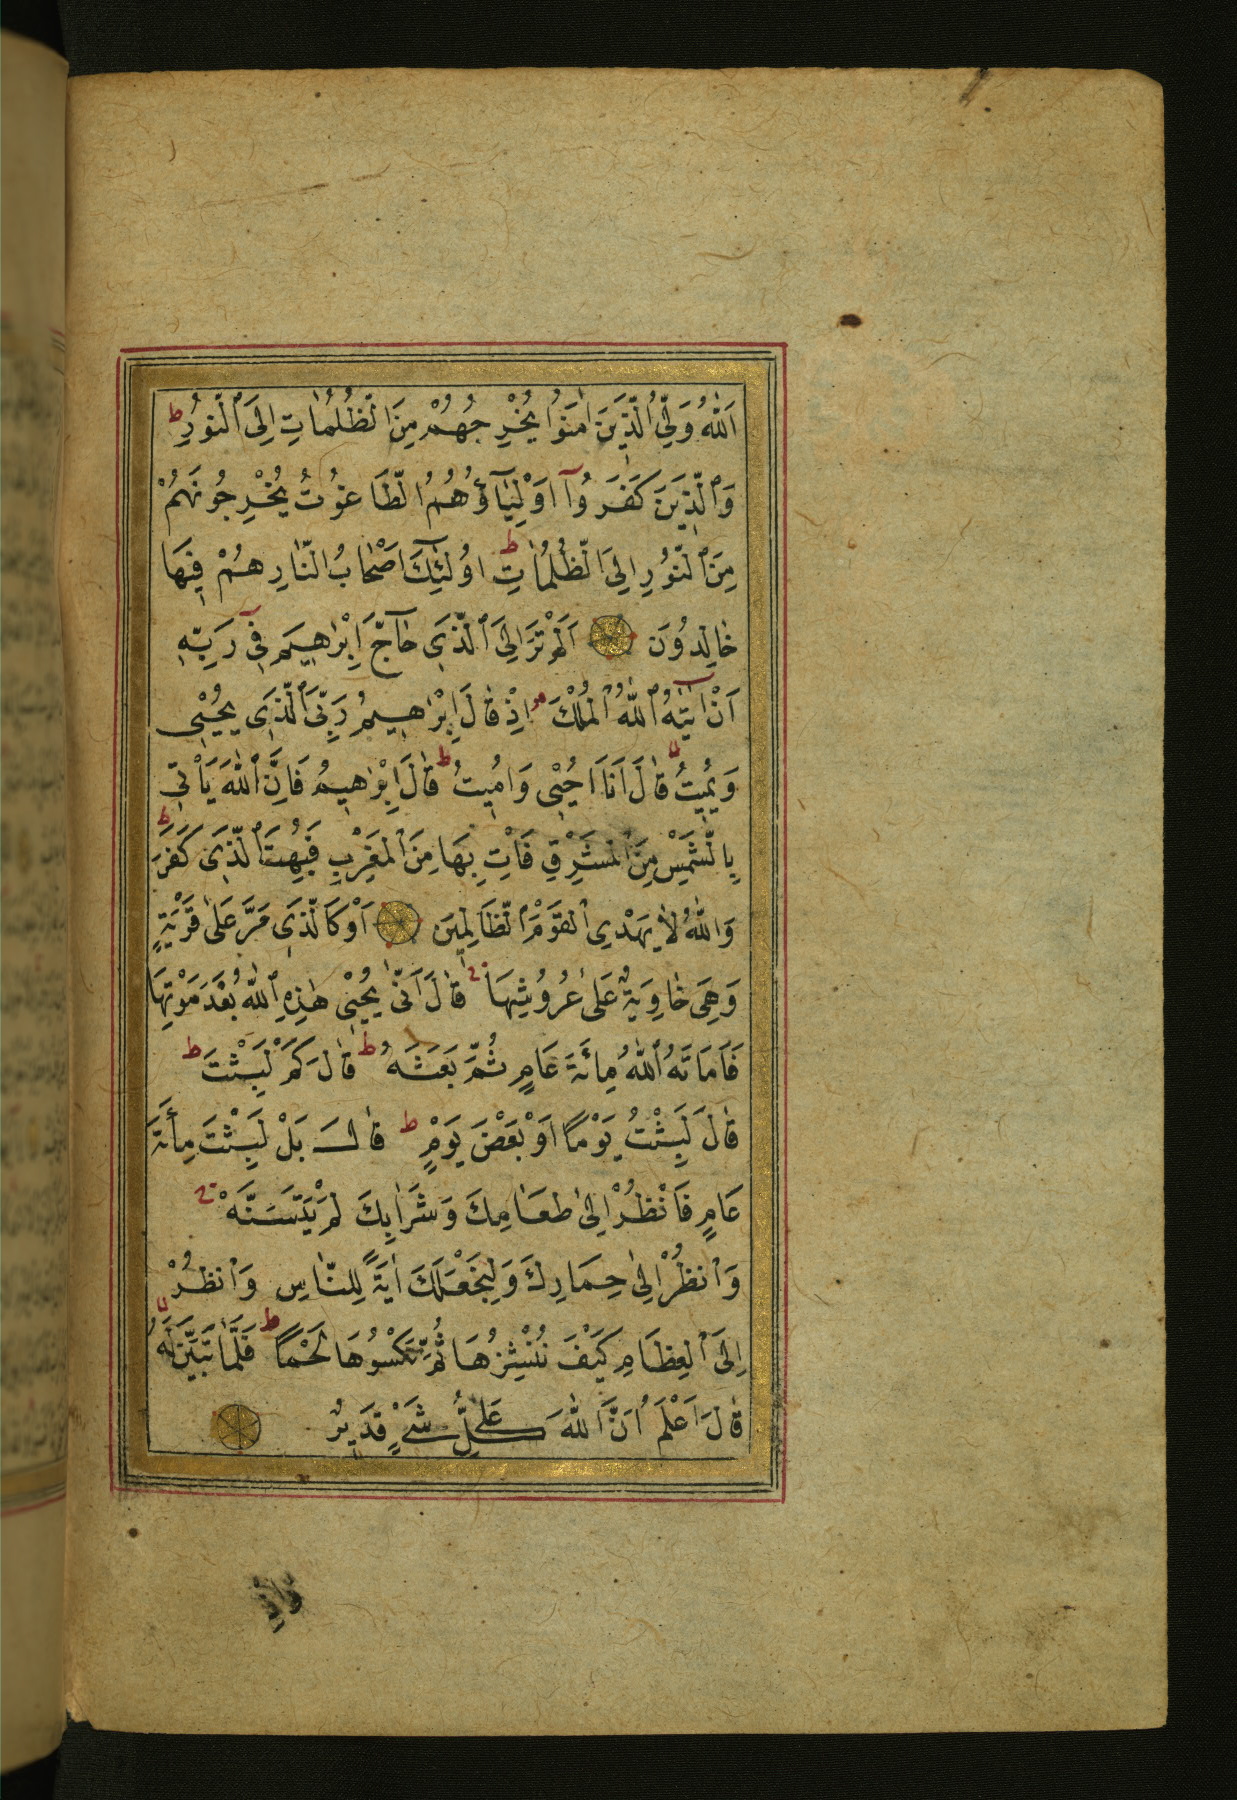 اَللّٰهُ وَلِيُّ الَّذِينَ اٰمَنُوا يُخْرِجُهُمْ مِنَ الظُّلُمَاتِ اِلَى النُّورِ ط
وَالَّذِينَ كَفَرُوآ اَوْلِيَآؤُهُمُ الطَّاغُوتُ يُخْرِجُونَهُمْ
مِنَ النُّورِ اِلَى الظُّلُمَاتِ ط اُولٰٓئِكَ اَصْحَابُ النَّارِ هُمْ فِيهَا
خَالِدُونَ اَلَمْ تَرَ اِلَى الَّذِي حَآجَّ اِبْرٰهِيمَ فِي رَبِّهِ
اَنْ اٰتٰيهُ اللّٰهُ الْمُلْكَ م اِذْ قَالَ اِبْرٰهِيمُ رَبِّيَ الَّذِي يُحْيِي
وَيُمِيتُ لا قَالَ اَنَا اُحْيِي وَاُمِيتُ ط قَالَ اِبْرٰهِيمُ فَاِنَّ اللّٰهَ يَاْتِي
بِالشَّمْسِ مِنَ الْمَشْرِقِ فَاْتِ بِهَا مِنَ الْمَغْرِبِ فَبُهِتَ الَّذِي كَفَرَ ط
وَاللّٰهُ لَا يَهْدِي الْقَوْمَ الظَّالِمِينَ اَوْ كَالَّذِي مَرَّ عَلٰى قَرْيَةٍ
وَهِيَ خَاوِيَةٌ عَلٰى عُرُوشِهَا ج قَالَ اَنّٰى يُحْيِي هٰذِهِ اللّٰهُ بَعْدَ مَوْتِهَا
فَاَمَاتَهُ اللّٰهُ مِائَةَ عَامٍ ثُمَّ بَعَثَهُ ط قَالَ كَمْ لَبِثْتَ ط
قَالَ لَبِثْتُ يَوْمًا اَوْ بَعْضَ يَوْمٍ ط قَالَ بَلْ لَبِثْتَ مِائَةَ
عَامٍ فَانْظُرْ اِلٰى طَعَامِكَ وَشَرَابِكَ لَمْ يَتَسَنَّهْ ج
وَانْظُرْ اِلٰى حِمَارِكَ وَلِنَجْعَلَكَ اٰيَةً لِلنَّاسِ وَانْظُرْ
اِلَى الْعِظَامِ كَيْفَ نُنْشِزُهَا ثُمَّ نَكْسُوهَا لَحْمًا ط فَلَمَّا تَبَيَّنَ لَهُ لا
قَالَ اَعْلَمُ اَنَّ اللّٰهَ عَلٰى كُلِّ شَيْءٍ قَدِيرٌ